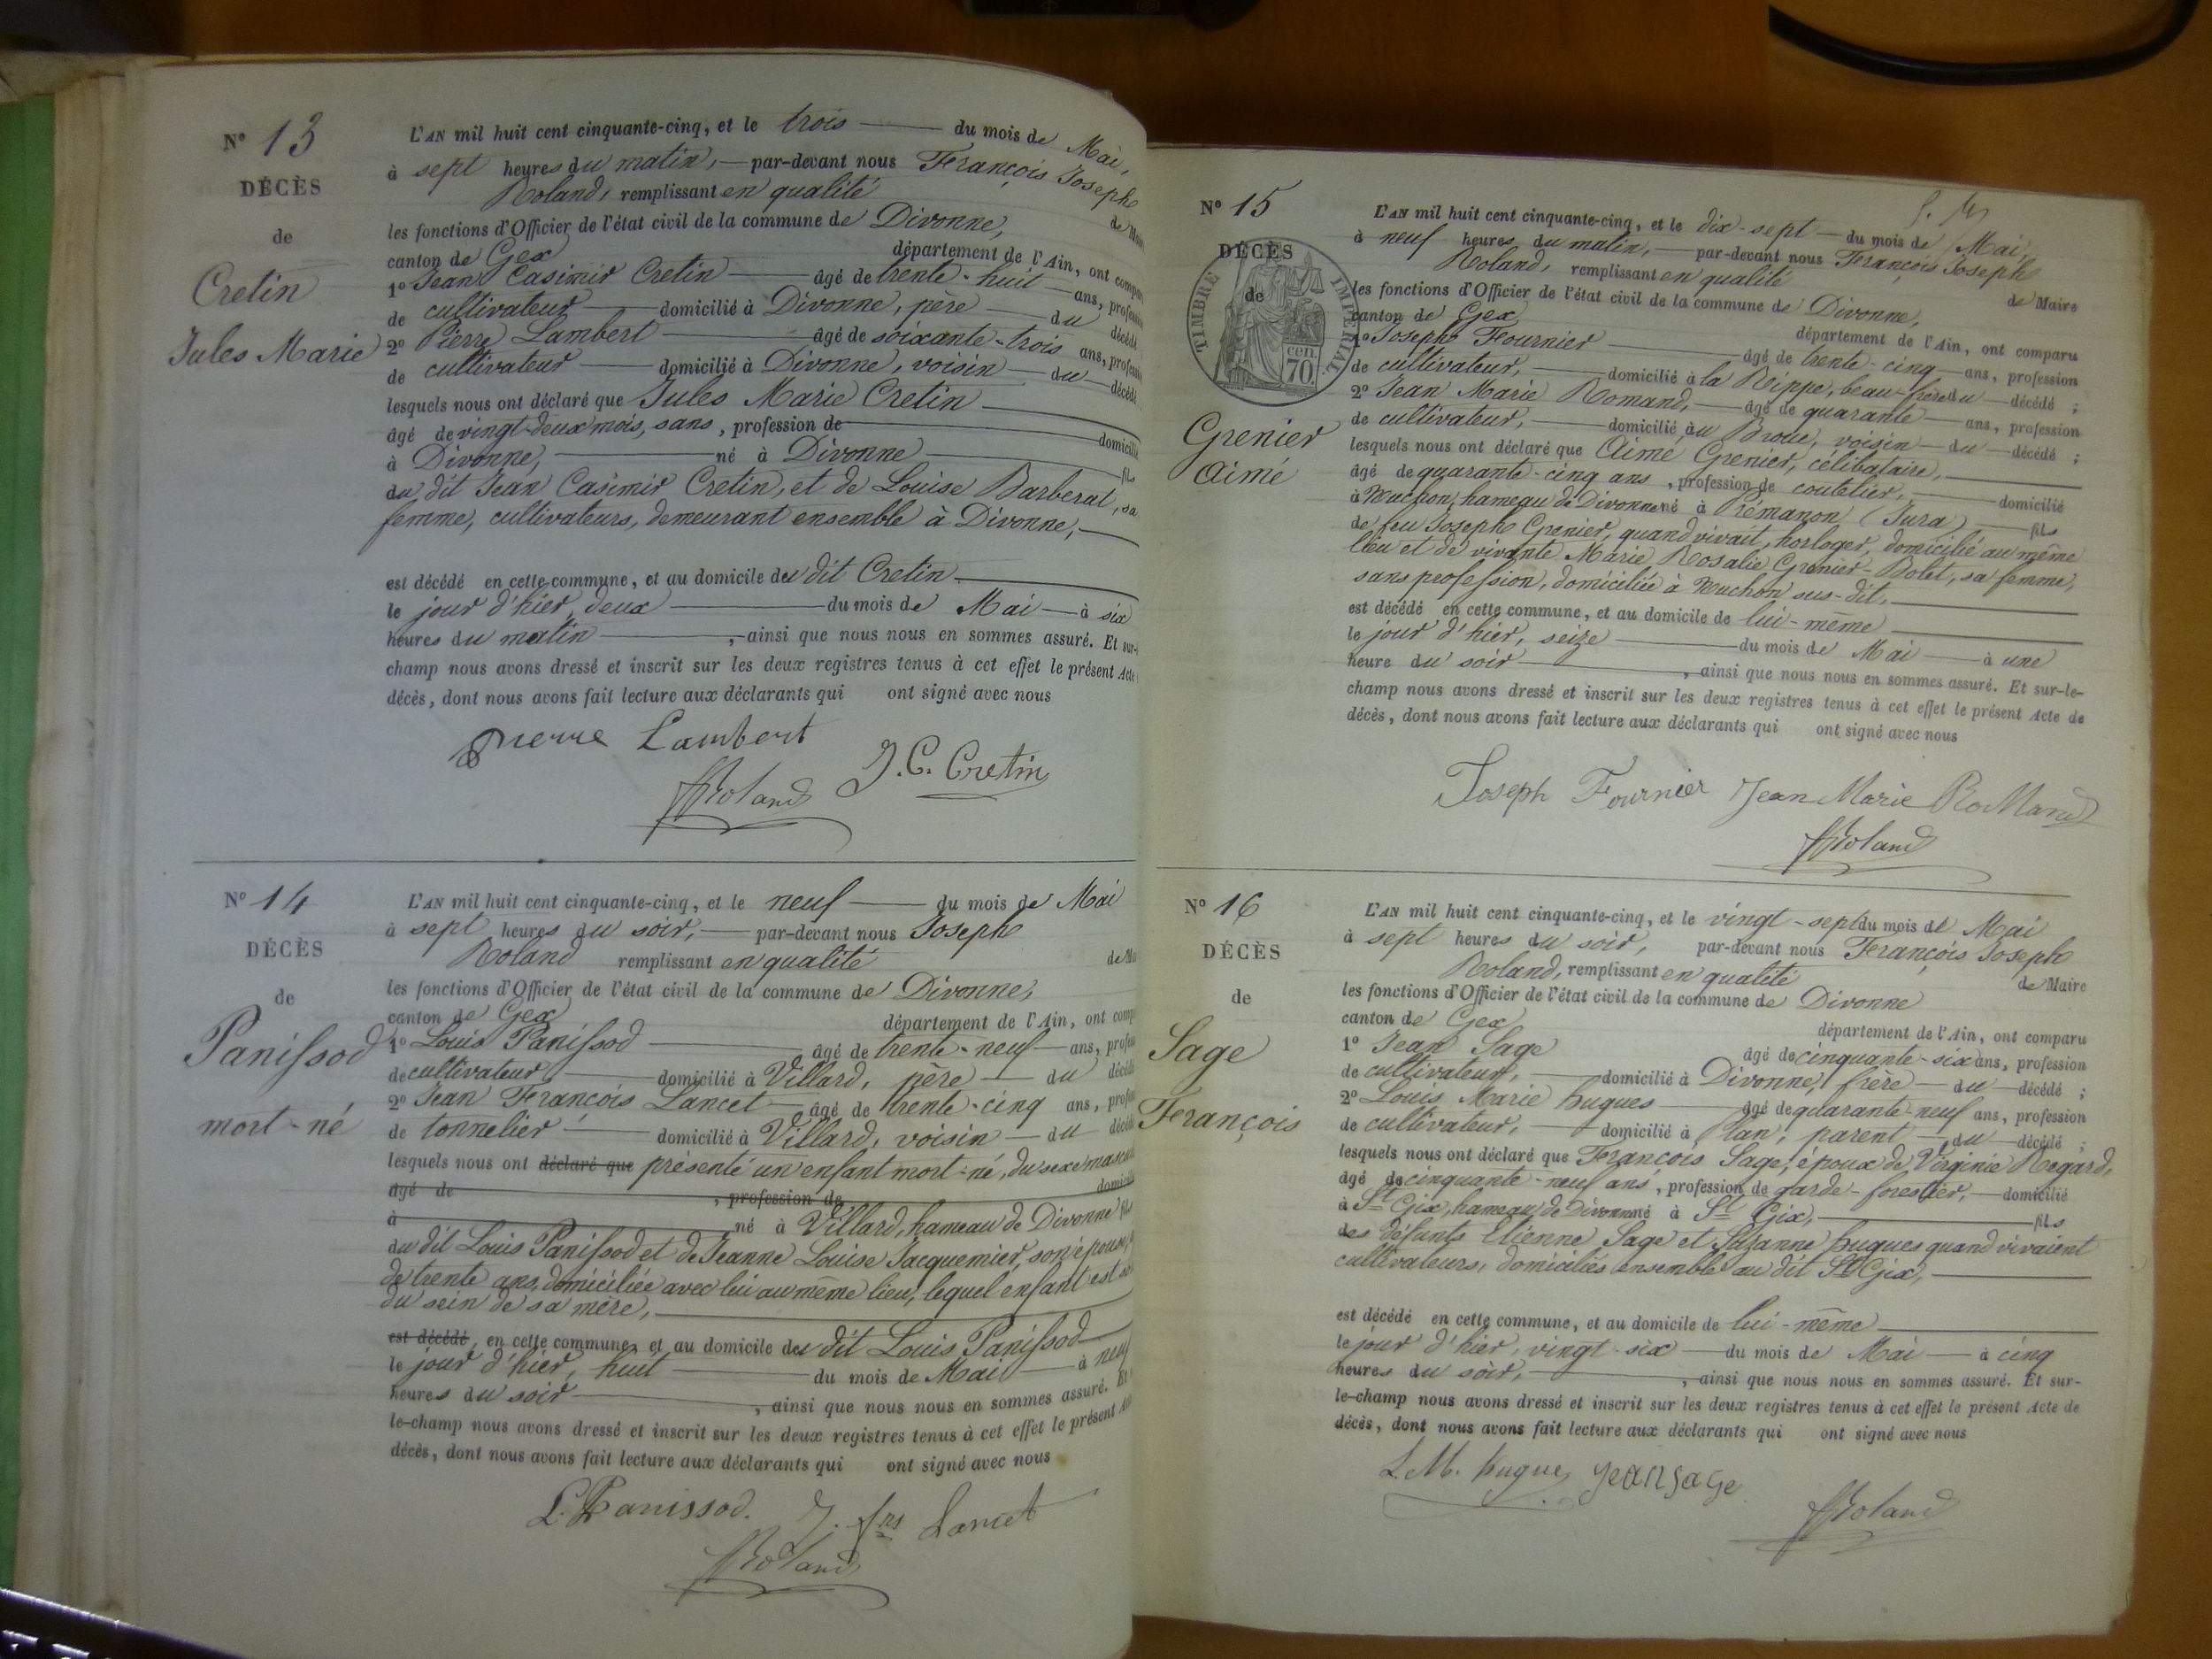 N° 13
DÉCÈS
de
Cretin
Jules Marie
L'AN mil huit cent cinquante-cinq, et le trois du mois de Mai,
à sept heures du matin, par-devant nous François Joseph
Roland, remplissant en qualité de
les fonctions d'Officier de l'état civil de la commune de Divonne,
canton de Gex département de l'Ain, ont
1° Jean Casimir Cretin âgé de trente-huit ans,
de cultivateur domicilié à Divonne, père du décédé
2° Pierre Lambert âgé de soixante-trois ans,
de cultivateur domicilié à Divonne, voisin du décédé
lesquels nous ont déclaré que Jules Marie Cretin
âgé de vingt-deux mois, sans, profession de
à Divonne, né à Divonne fils
du dit Jean Casimir Cretin, et de Louise Barberat, sa
femme, cultivateurs, demeurant ensemble à Divonne,
est décédé en cette commune, et au domicile du dit Cretin
le jour d'hier, deux du mois de Mai à six
heures du matin, ainsi que nous nous en sommes assuré. Et sur-
champ nous avons dressé et inscrit sur les deux registres tenus à cet effet le présent Acte
décès, dont nous avons fait lecture aux déclarants qui ont signé avec nous
Pierre Lambert
J. C. Cretin
Roland
N° 14
DÉCÈS
de
Panissod
mort-né
L'AN mil huit cent cinquante-cinq, et le neuf du mois de Mai
à sept heures du soir, par-devant nous Joseph
Roland remplissant en qualité de
les fonctions d'Officier de l'état civil de la commune de Divonne,
canton de Gex département de l'Ain, ont
1° Louis Panissod âgé de trente-neuf ans,
de cultivateur domicilié à Villard, père du
2° Jean François Lancet âgé de trente-cinq ans,
de tonnelier domicilié à Villard, voisin du
lesquels nous ont déclaré que présenté un enfant mort-né, du sexe
âgé de , profession de
à né à Villard, hameau de Divonne fils
du dit Louis Panissod et de Jeanne Louise Jacquemier, son épouse,
de trente ans, domiciliée avec lui au même lieu, lequel enfant est
du sein de sa mère,
est décédé, en cette commune, et au domicile du dit Louis Panissod
le jour d'hier, huit du mois de Mai à neuf
heures du soir, ainsi que nous nous en sommes assuré. Et
le-champ nous avons dressé et inscrit sur les deux registres tenus à cet effet le présent
décès, dont nous avons fait lecture aux déclarants qui ont signé avec nous
L. Panissod. J. frs Lancet
Roland
N° 15
DÉCÈS
de
TIMBRE IMPÉRIAL
70 cen
Grenier
Aimé
L'AN mil huit cent cinquante-cinq, et le dix-sept du mois de Mai,
à neuf heures du matin, par-devant nous François Joseph
Roland, remplissant en qualité de Maire
les fonctions d'Officier de l'état civil de la commune de Divonne,
canton de Gex département de l'Ain, ont comparu
1° Joseph Fournier âgé de trente-cinq ans, profession
de cultivateur, domicilié à la Rippe, beau-frère du décédé ;
2° Jean Marie Romand, âgé de quarante ans, profession
de cultivateur, domicilié au Broue, voisin du décédé ;
lesquels nous ont déclaré que Aimé Grenier, célibataire,
âgé de quarante-cinq ans, profession de coutelier, domicilié
à Wuchon, hameau de Divonne né à Prémanon (Jura) fils
de feu Joseph Grenier, quand vivait, horloger, domicilié au même
lieu et de vivante Marie Rosalie Grenier-Bolet, sa femme,
sans profession, domiciliée à Wuchon sus-dit,
est décédé en cette commune, et au domicile de lui-même
le jour d'hier, seize du mois de Mai à une
heure du soir, ainsi que nous nous en sommes assuré. Et sur-le-
champ nous avons dressé et inscrit sur les deux registres tenus à cet effet le présent Acte de
décès, dont nous avons fait lecture aux déclarants qui ont signé avec nous
Joseph Fournier Jean Marie RoMand
Roland
N° 16
DÉCÈS
de
Sage
François
L'AN mil huit cent cinquante-cinq, et le vingt-sept du mois de Mai
à sept heures du soir, par-devant nous François Joseph
Roland, remplissant en qualité de Maire
les fonctions d'Officier de l'état civil de la commune de Divonne
canton de Gex département de l'Ain, ont comparu
1° Jean Sage âgé de cinquante-six ans, profession
de cultivateur, domicilié à Divonne, frère du décédé ;
2° Louis Marie hugues âgé de quarante-neuf ans, profession
de cultivateur, domicilié à Plan, parent du décédé ;
lesquels nous ont déclaré que François Sage, époux de Virginie Regard,
âgé de cinquante-neuf ans, profession de garde-forestier, domicilié
à St Gix, hameau de Divonne né à St Gix, fils
des défunts Etienne Sage et Suzanne hugues quand vivaient
cultivateurs, domiciliés ensemble au dit St Gix,
est décédé en cette commune, et au domicile de lui-même
le jour d'hier, vingt-six du mois de Mai à cinq
heures du soir, ainsi que nous nous en sommes assuré. Et sur-
le-champ nous avons dressé et inscrit sur les deux registres tenus à cet effet le présent Acte de
décès, dont nous avons fait lecture aux déclarants qui ont signé avec nous
L. M. hugues jean sage
Roland